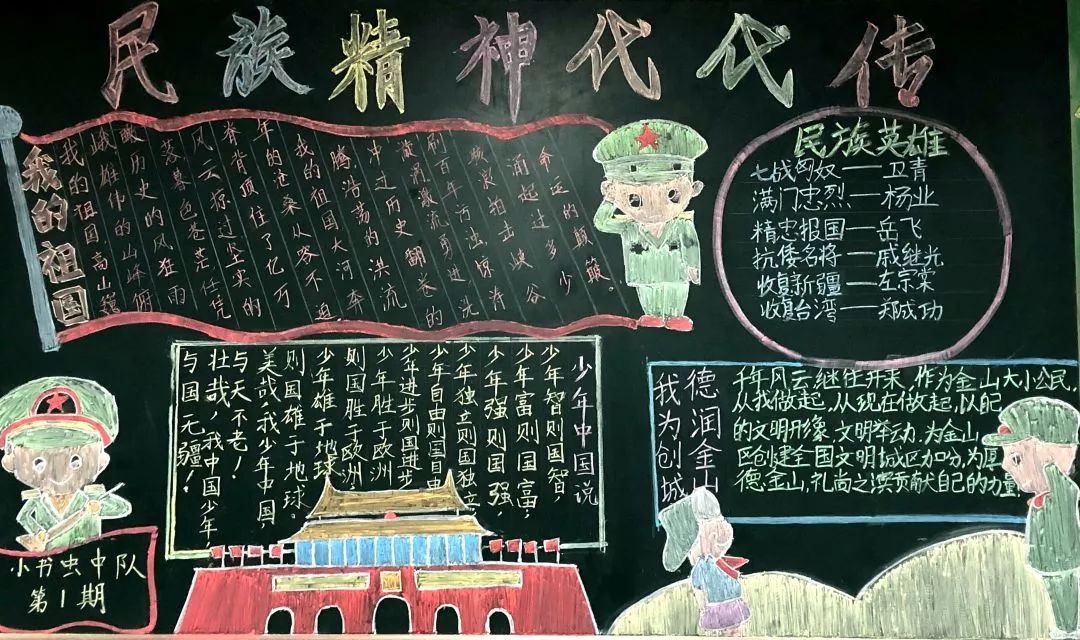 民族精神代代传
我的祖国
我的祖国,高山巍
峨雄伟的山峰俯
瞰历史的风狂雨
落暮色苍茫,任凭
风云掠过坚实的
脊背顶住了亿万
年的沧桑从容不迫
我的祖国大河奔
腾浩荡的洪流
冲过历史翻卷的
漩涡激流勇进,洗
刷百年污浊惊涛
骇浪拍击峡谷
涌起过多少
命运的颠簸。
民族英雄
七战匈奴——卫青
满门忠烈——杨业
精忠报国——岳飞
抗倭名将——戚继光
收复新疆——左宗棠
收复台湾——郑成功
少年中国说
少年智则国智,
少年富则国富;
少年强则国强,
少年独立则国独立
少年自由则国自由
少年进步则国进步
少年胜于欧洲
则国胜于欧洲
少年雄于地球
则国雄于地球。
美哉,我少年中国
与天不老!
壮哉,我中国少年
与国无疆!
德润金山
我为创城
千年风云,继往开来,作为金山大小公民,
从我做起,从现在做起,以自己
的文明形象,文明举动,为金山
区创建全国文明城区加分,为厚
德金山,礼尚之滨贡献自己的力量
小书虫中队
第1期